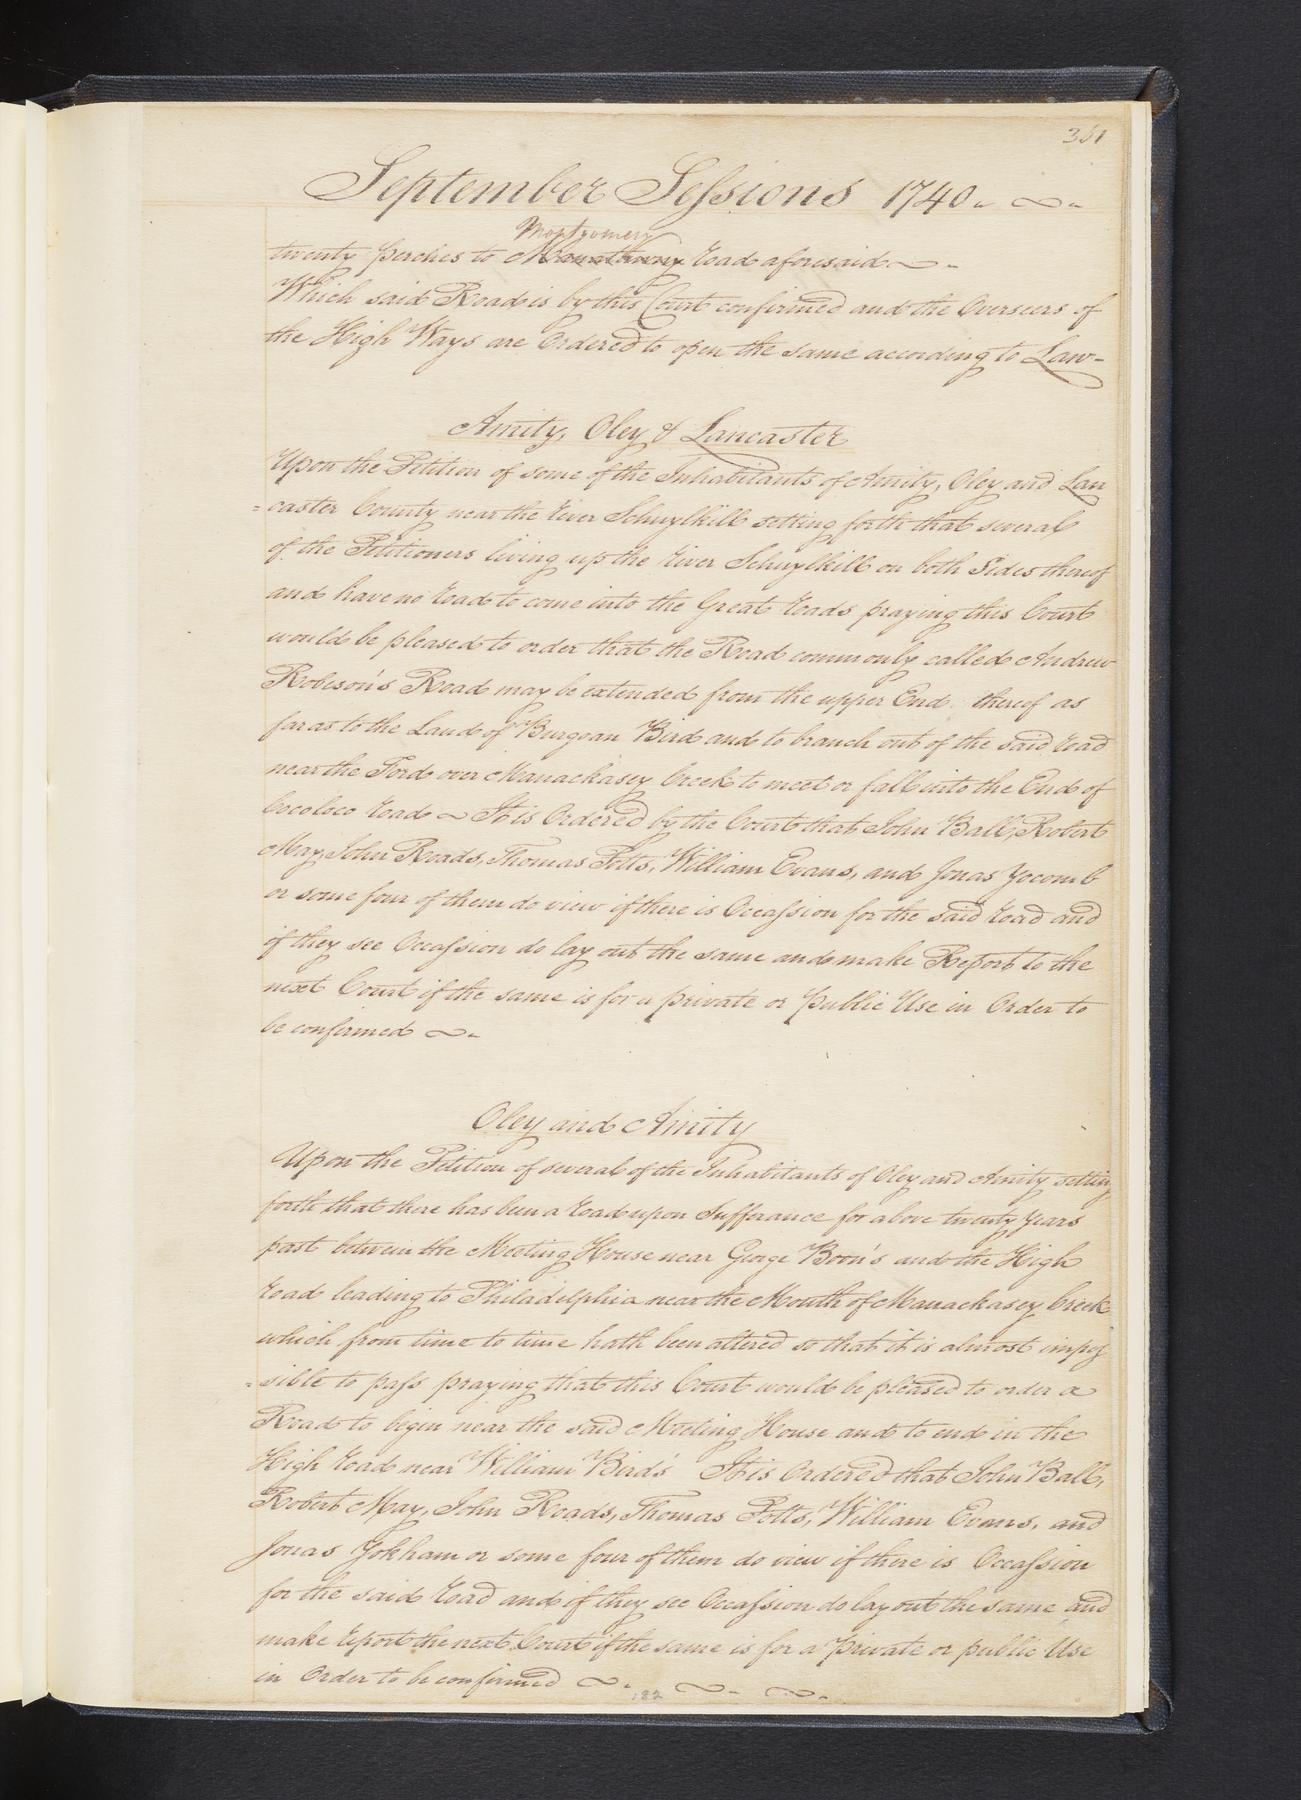 361
September Sessions 1740
Montgomery
twenty perches to road aforesaid
Which said Road is by this Court confirmed and the Overseers of
the High Ways are Ordered to open the same according to Law-
Amity, Oley & Lancaster
Upon the Petition of some of the Inhabitants of Amity, Oley and Lan
=caster County near the river Schuylkill setting forth that several
of the Petitioners living up the river Schuylkill on both Sides thereof
and have no road to come into the Great roads praying this Court
would be pleased to order that the Road commonly called Andrew
Robeson's Road may be extended from the upper End thereof as
far as to the Land of Burgoan Bird and to branch out of the said road
near the Ford over Manackasey Creek to meet or fall into the End of
Cocoloco road ~ It is Ordered by the Court that John Ball, Robert
May, John Roads, Thomas Potts, William Evans, and Jonas Yocomb
or some four of them do view if there is Occassion for the said road and
if they see Occassion do lay out the same and make Report to the
next Court if the same is for a private or public Use in Order to
be confirmed ~-
Oley and Amity
Upon the Petition of several of the Inhabitants of Oley and Amity setting
forth that there has been a road upon Sufferance for above twenty Years
past between the Meeting House near George Boon's and the High
road leading to Philadelphia near the Mouth of Manackasey Creek
which from time to time hath been altered so that it is almost impos
=sible to pass praying that this Court would be pleased to order a
Road to begin near the said Meeting House and to end in the
High road near William Bird's It is Ordered that John Ball,
Robert May, John Roads, Thomas Potts, William Evans, and
Jonas Yokham or some four of them do view if there is Occassion
for the said road and if they see Occassion do lay out the same and
make report the next Court if the same is for a private or public Use
in Order to be confirmed ~- ~- ~-
182